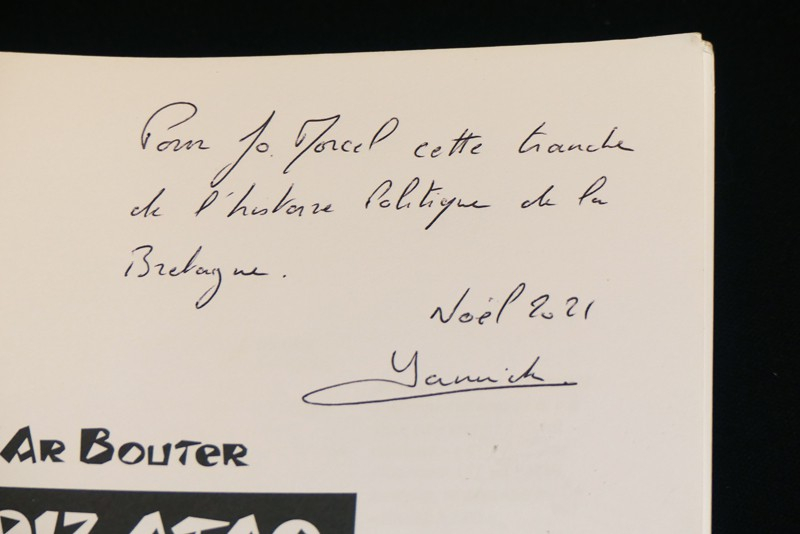 Pour Jo. Morcel cette tranche
de l'histoire Politique de la
Bretagne.
Noël 2021
Yannick
AR BOUTER
ATAO